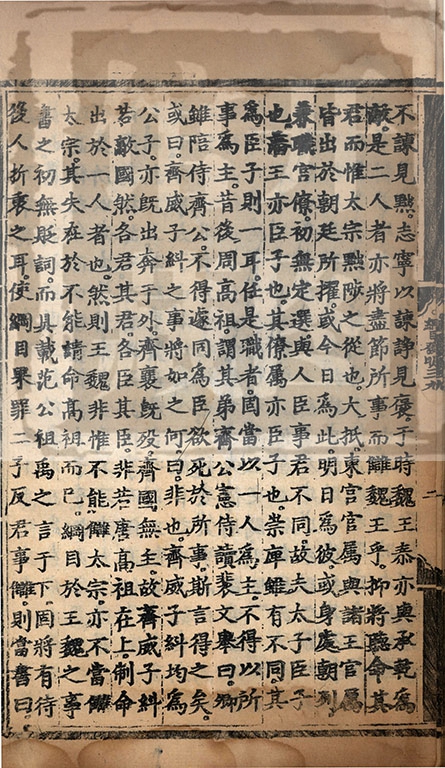 不諫見黜志寧以諫諍見褒于時魏王泰亦與承乾爲
敵是二人者亦將盡節所事而讎魏王乎抑將聽命其
君而惟太宗黜陟之從也大抵東宫官屬與諸王官屬
皆出於朝廷所擢或今日爲此明日爲彼或身處朝列
兼職官僚初無定選與人臣事君不同故夫太子臣子
也藩王亦臣子也其僚屬亦臣子也崇庳雖有不同其
爲臣子則一耳任是職者固當以一人爲主不得以所
事爲主昔後周高祖謂其弟齊公憲侍讀裴文舉曰卿
雖陪侍齊公不得遽同爲臣欲死於所事斯言得之矣
或曰齊威子糾之事將如之何曰非也齊威子糾均爲
公子亦旣出奔于外齊襄旣殁齊國無主故齊威子糾
若敵國然各君其君各臣其臣非若唐高祖在上制命
出於一人者也然則王魏非惟不能讎太宗亦不當讎
太宗其失在於不能請命高祖而已綱目於王魏之事
書之初無貶詞而具載范公祖禹之言于下罔將有待
後人折衷之耳使綱目果罪二子反君事讎則當書曰